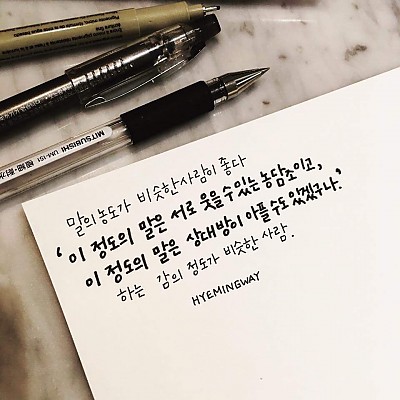 MITSUBISHI UM-151
말의 농도가 비슷한 사람이 좋다
'이 정도의 말은 서로 웃을 수 있는 농담조이고,
이 정도의 말은 상대방이 아플 수도 있겠구나.'
하는 감의 정도가 비슷한 사람.
HYEMINGWAY